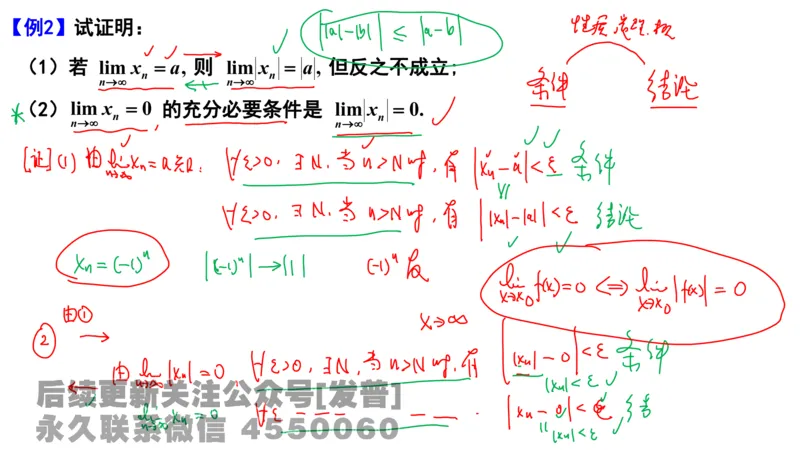 【例2】试证明： ||a|-|b|| ≤ |a-b|
（1）若 lim_{n→∞} x_n = a, 则 lim_{n→∞} |x_n| = |a|, 但反之不成立； 条件 结论
*（2）lim_{n→∞} x_n = 0 的充分必要条件是 lim_{n→∞} |x_n| = 0.
[证](1) 由 lim_{n→∞} x_n = a 知: ∀ε>0, ∃N, 当 n>N时, 有 |x_n-a|<ε 条件
∀ε>0, ∃N, 当 n>N时, 有 ||x_n|-|a||<ε 结论
x_n=(-1)^n |(-1)^n|→|1| (-1)^n
lim_{x→x_0} f(x)=0 ⟺ lim_{x→x_0} |f(x)|=0
由① → x→∞
②
← 由 lim_{n→∞} |x_n|=0, ∀ε>0, ∃N, 当 n>N时, 有 ||x_n|-0|<ε 条件
|x_n|<ε
lim_{n→∞} x_n=0 ∀ε --- --- . |x_n-0|<ε 结
|x_n|<ε
后续更新关注公众号[发普]
永久联系微信 4550060